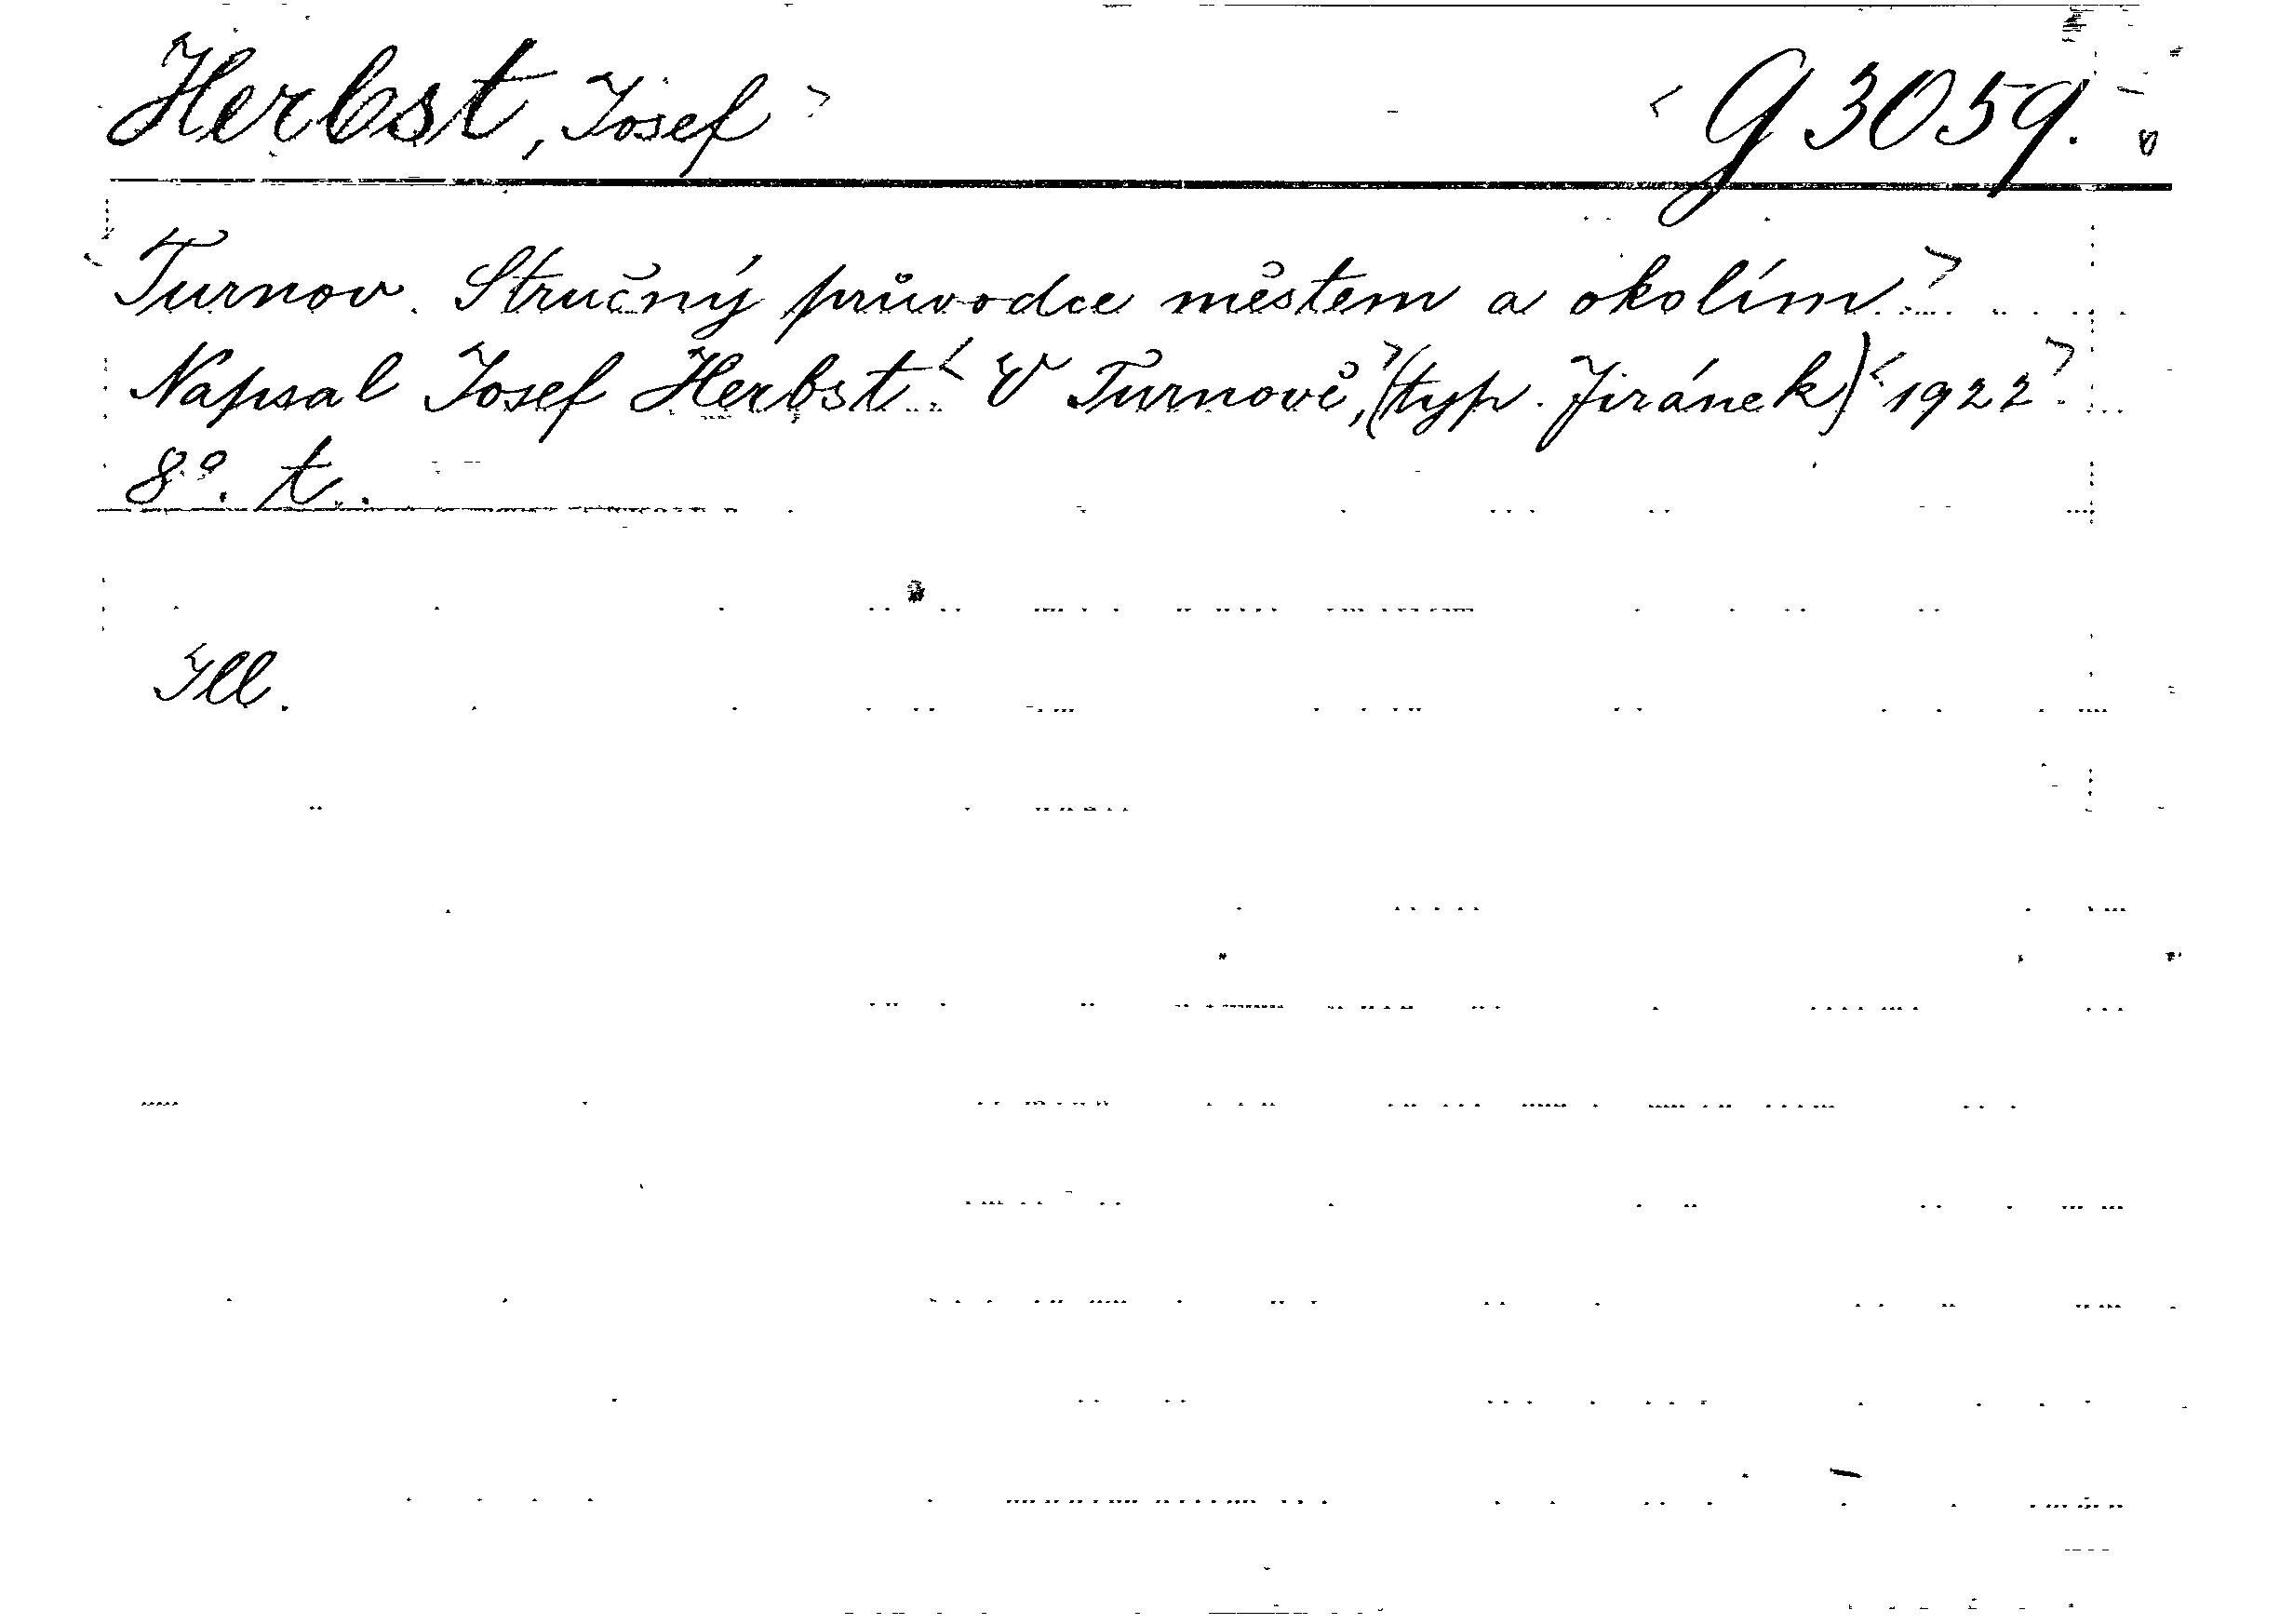 Herbst, Josef G 3059.
Turnov. Stručný průvodce městem a okolím.
Napsal Josef Herbst. V Turnově, (typ. Jiránek) 1922.
8º. t.
Ill.